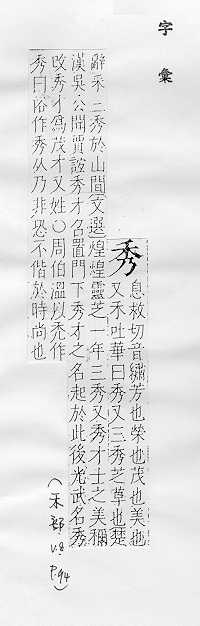 字彙
秀
息救切音繡芳也榮也茂也美也
又禾吐華曰秀又三秀芝草也楚
辭采三秀於山間文選煌煌靈芝一年三秀又秀才士之美稱
漢吳公聞賈誼秀才召置門下秀才之名起於此後光武名秀
改秀才為茂才又姓○周伯溫以禿作
秀曰俗作秀从乃非恐不偕於時尚也
(禾部 V.8 P.94)